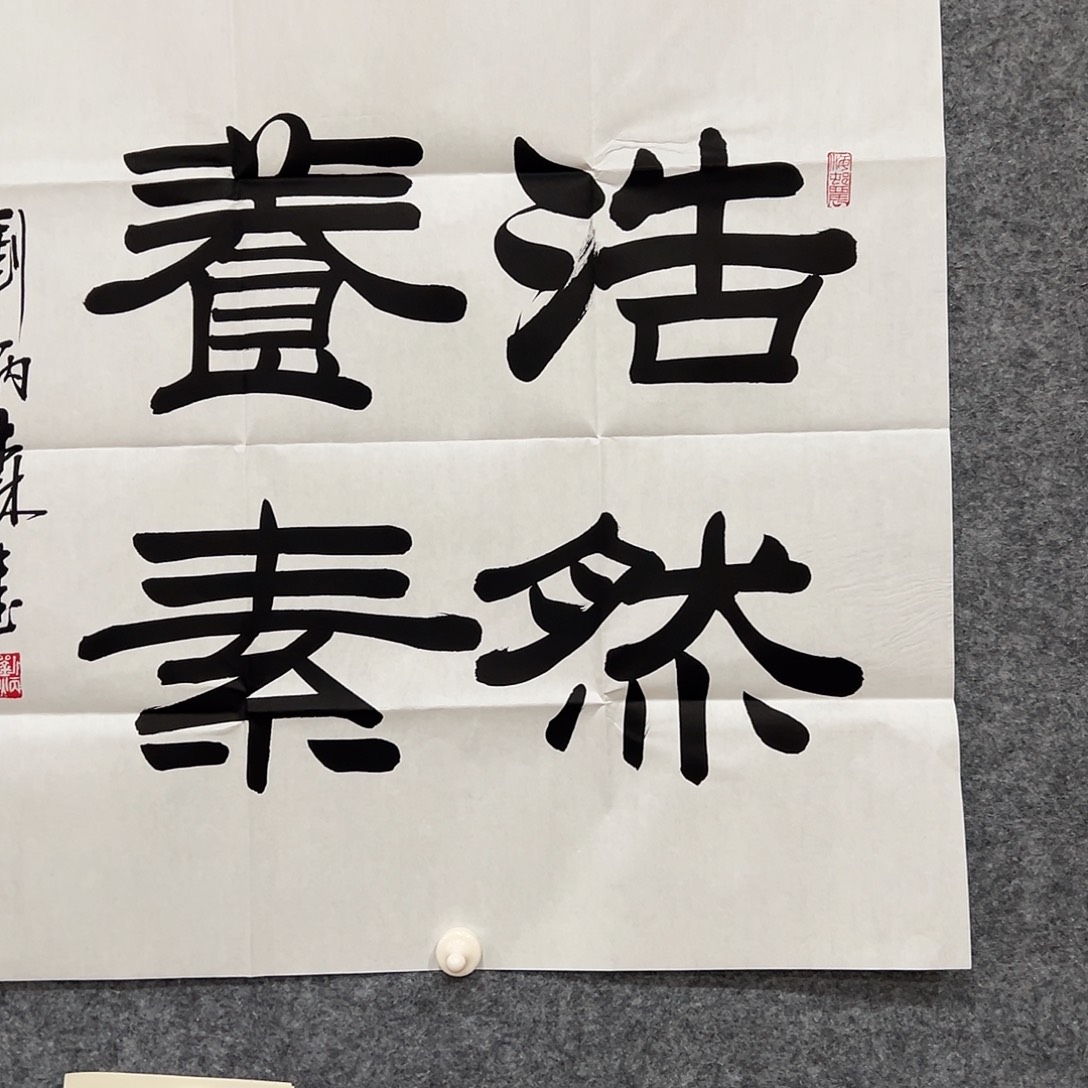 浩然
養素
劉炳森書